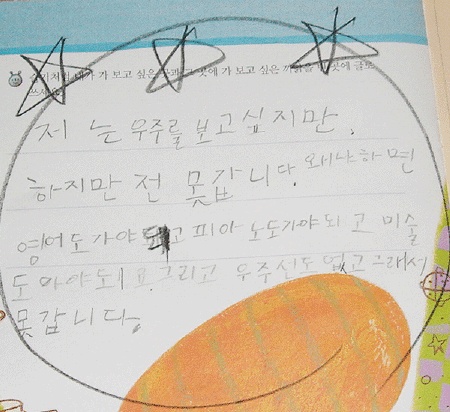 슬기처럼 내가 가 보고 싶은 곳과 그 곳에 가 보고 싶은 까닭을 빈 곳에 글로
쓰세요.
저는 우주를 보고싶지만.
하지만 전 못갑니다. 왜냐하면
영어도 가야되고 피아노도가야되고 미술
도 가야되고 그리고 우주선도 없고 그래서
못갑니다.